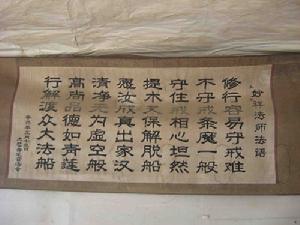 妙祥法师法语
修行容易守戒难
不守戒条魔一般
守住戒相心坦然
提木叉保解脱船
应汝成真出家汉
清净无为虚空般
高尚品德如青莲
行解渡众大法船